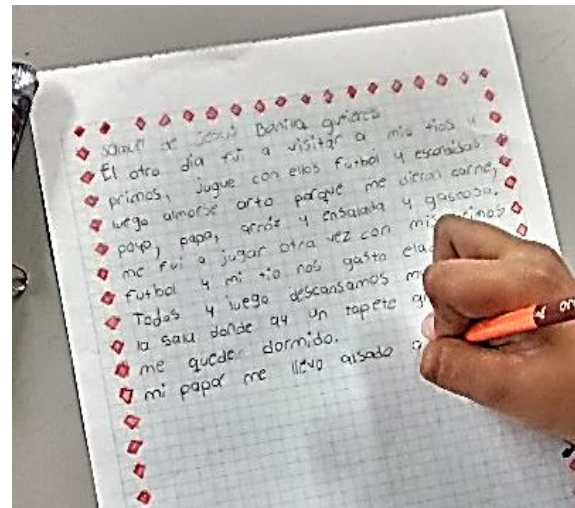 de Jesus Bonilla
El otro dia fui a visitar a mis tios y
primos, jugue con ellos futbol y escondidas
luego almorse arto porque me dieron carne,
poyo, papa, arróz y ensalada y gaseosa.
me fui a jugar otra vez con mis
futbol y mi tio nos gasto
Todos y luego descansamos
la sala donde ay un tapete
me quede dormido.
mi papá me llevo alsado